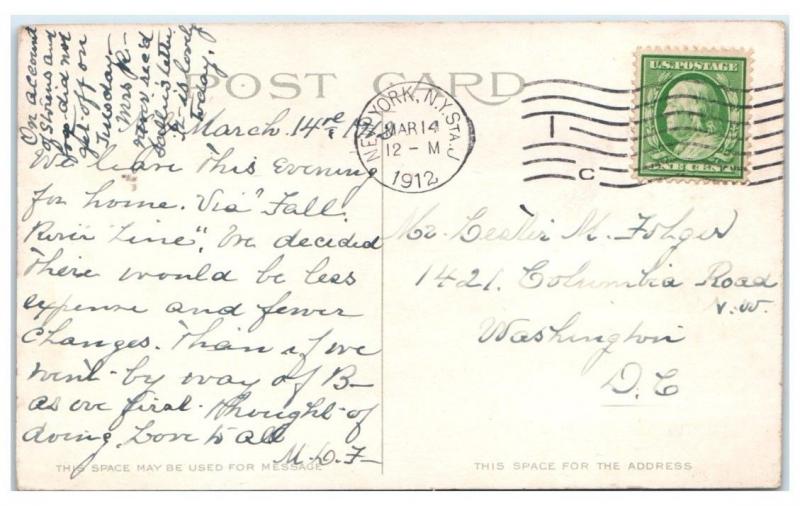 POST CARD
On account
of Storms and
fog did not
get off on
Tuesday
Mrs K-
rec'd
letter
it is lovely
today.
March 14
We leave this Evening
for home. Via "Fall
River Line". We decided
there would be less
expense and fewer
Changes. Than if we
went by way of B-
as we first thought of
doing. Love to all
M.D.F-
THIS SPACE MAY BE USED FOR MESSAGE
NEW YORK, N.Y. STA. J
MAR 14
12 - M
1912
1
C
U.S. POSTAGE
ONE CENT
Mr. Lester M. Folger
1421. Columbia Road
N.W.
Washington
D.C
THIS SPACE FOR THE ADDRESS